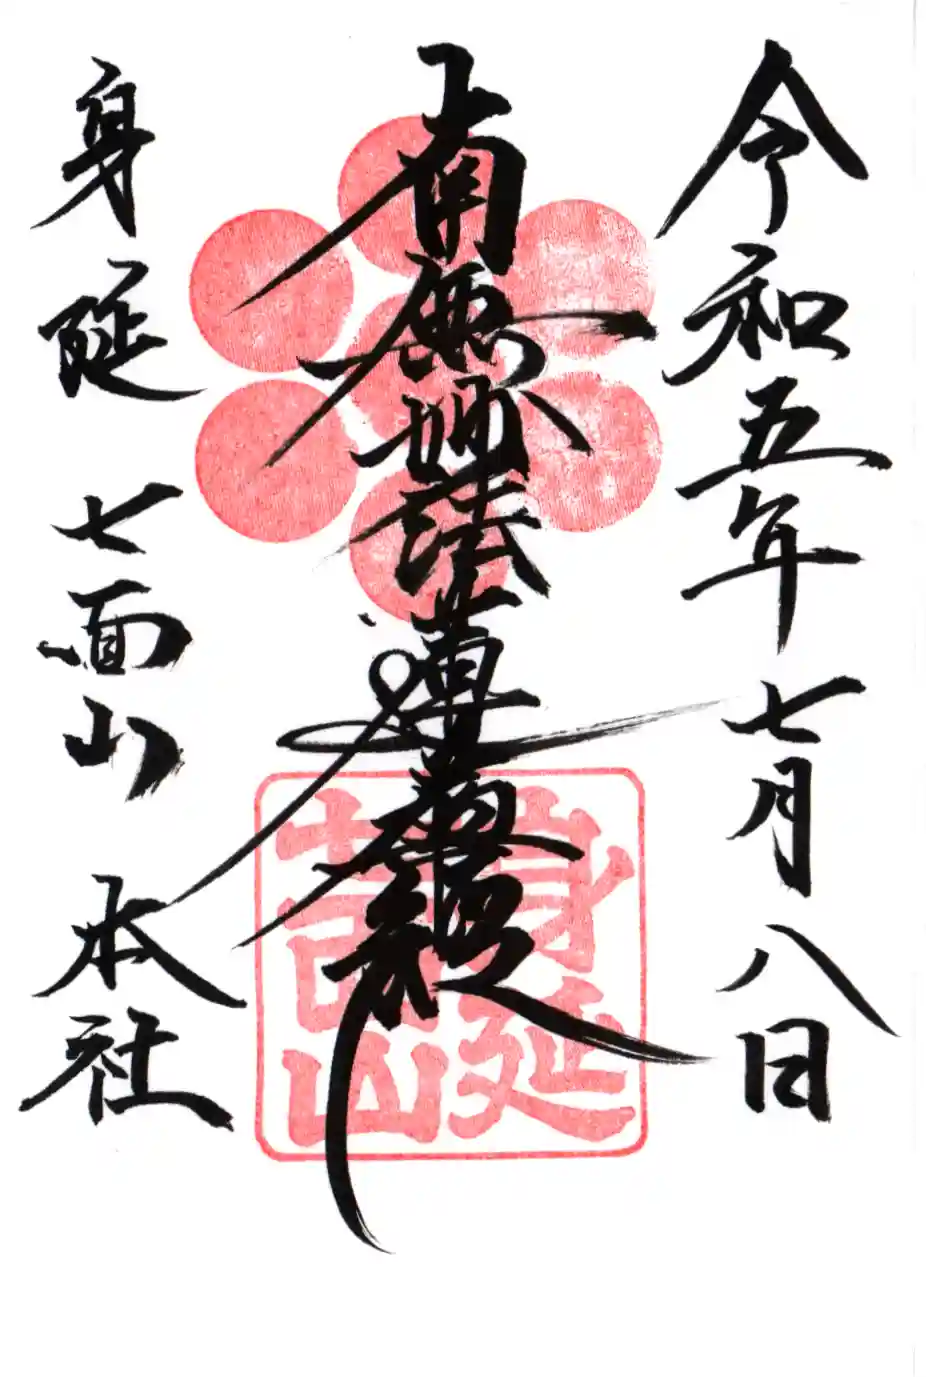 令和五年七月八日
南無妙法蓮華経
身延七面山本社
身延
七面山